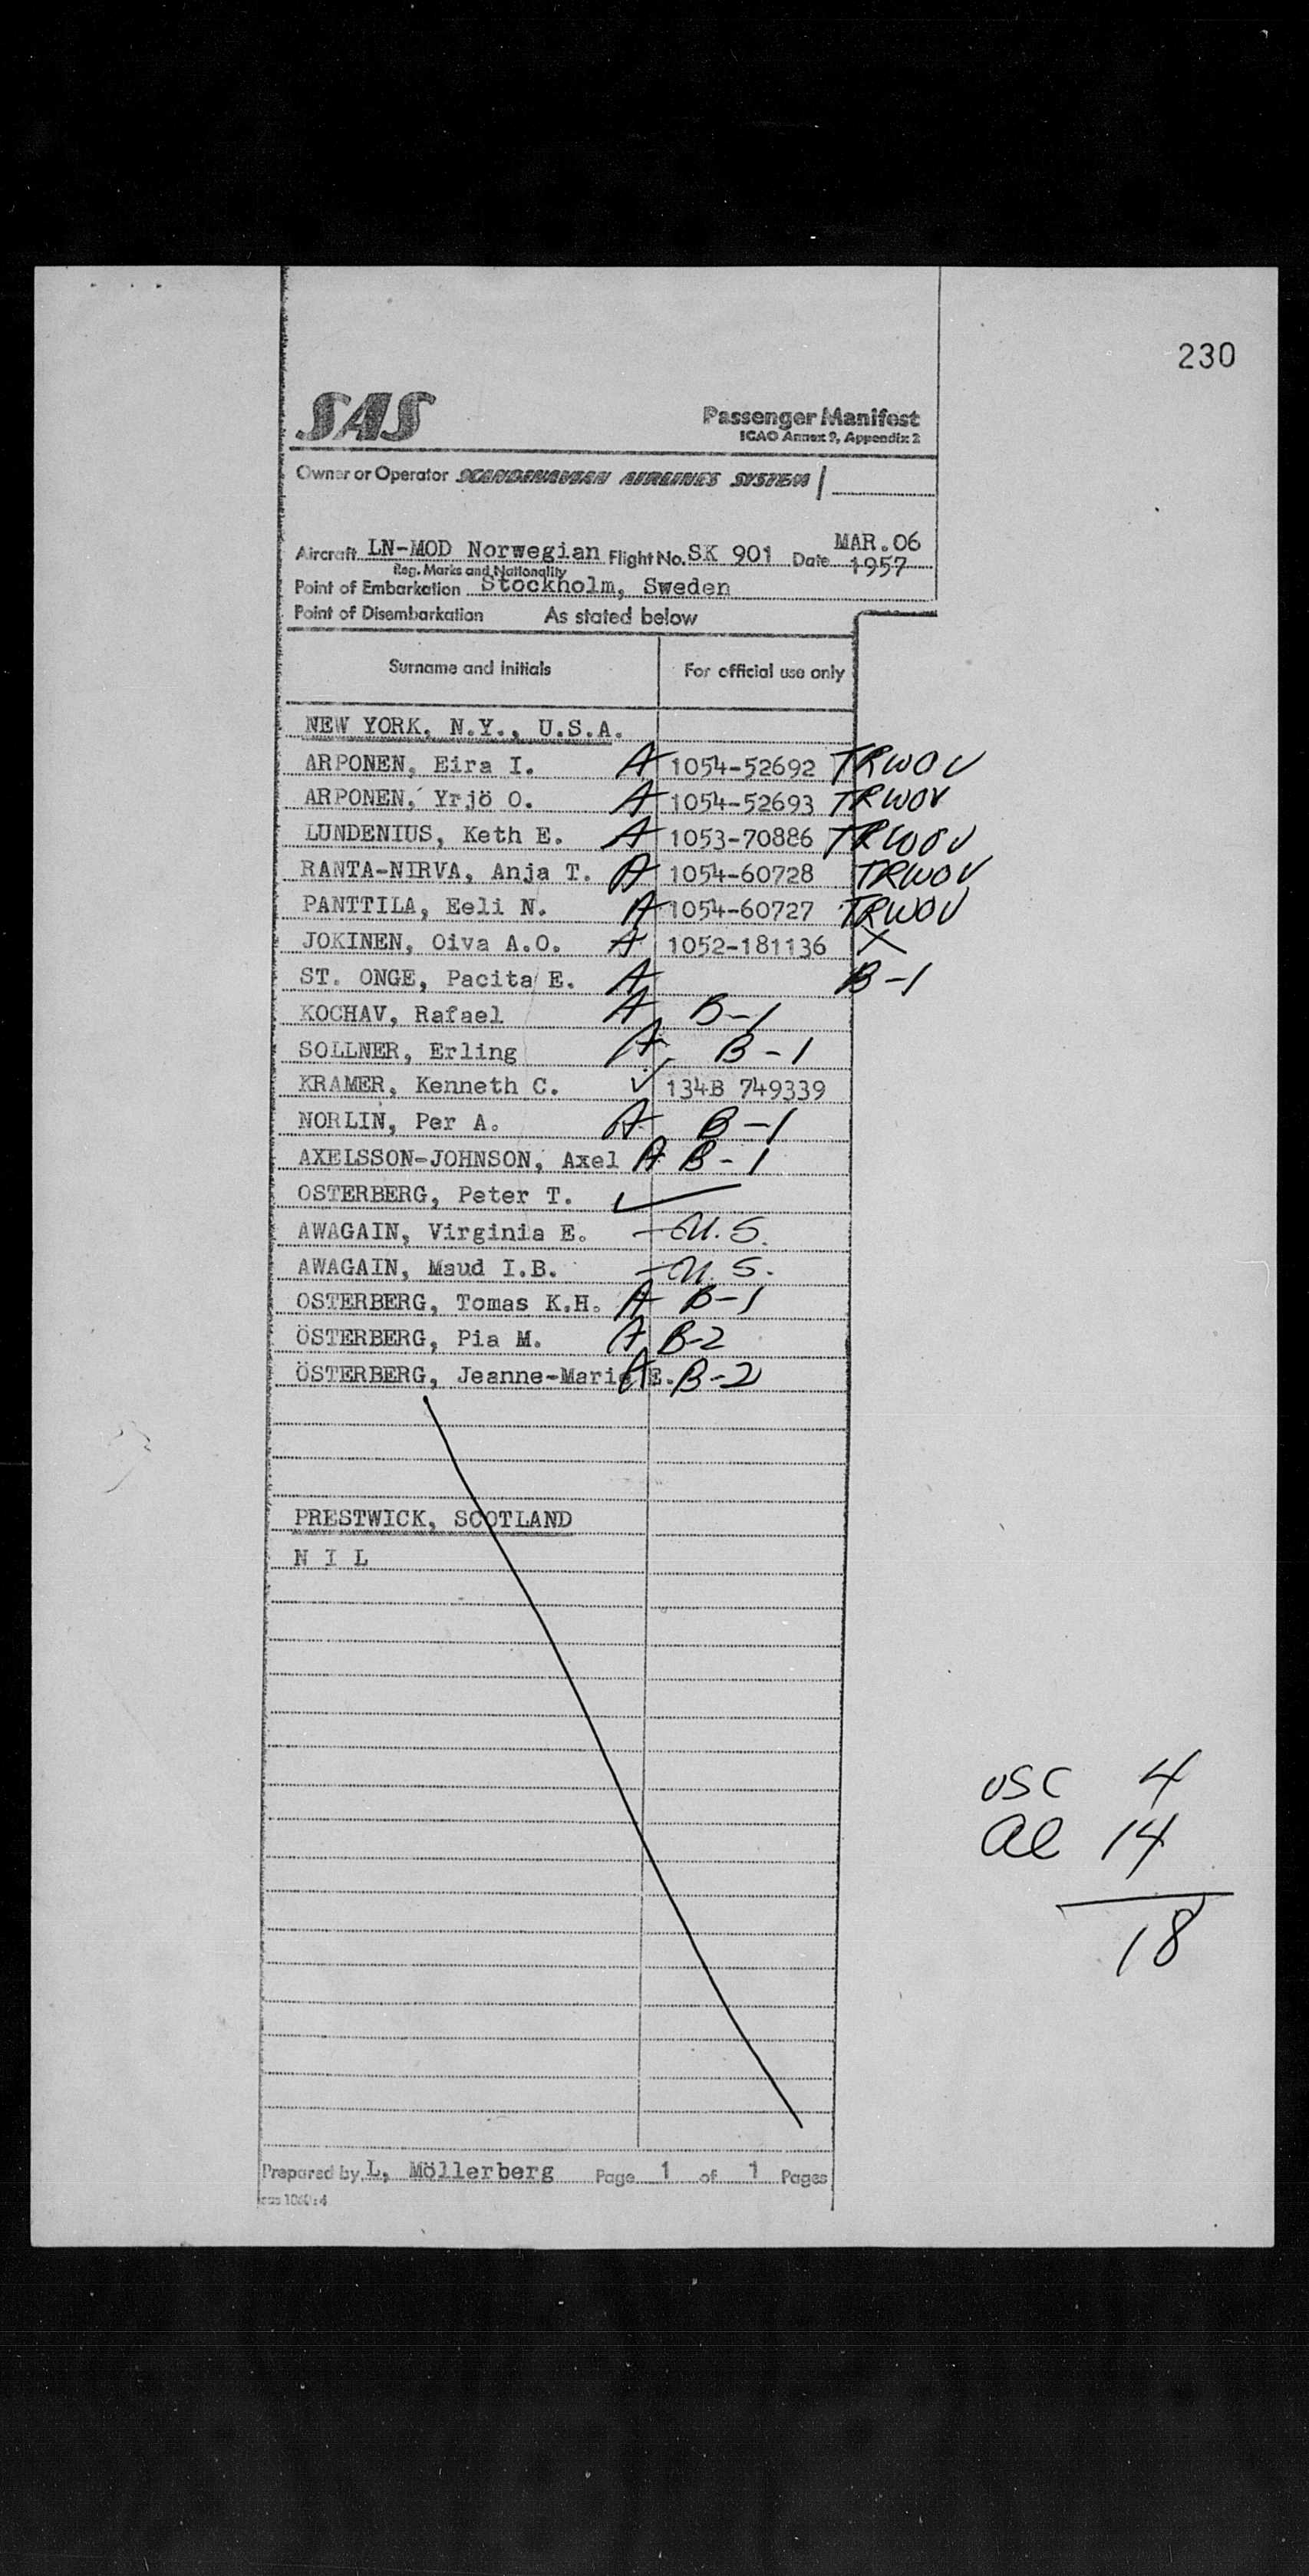 230
SAS
Passenger Manifest
ICAO Annex 9, Appendix 2
Owner or Operator SCANDINAVIAN AIRLINES SYSTEM
Aircraft LN-MOD Norwegian Flight No. SK 901 Date MAR.06 1957
Reg. Marks and Nationality
Point of Embarkation Stockholm, Sweden
Point of Disembarkation As stated below
Surname and initials For official use only
NEW YORK, N.Y., U.S.A.
ARPONEN, Eira I. A 1054-52692 TRWOV
ARPONEN, Yrjö O. A 1054-52693 TRWOV
LUNDENIUS, Keth E. A 1053-70886 TRWOV
RANTA-NIRVA, Anja T. A 1054-60728 TRWOV
PANTTILA, Eeli N. A 1054-60727 TRWOV
JOKINEN, Oiva A.O. A 1052-181136 X
ST. ONGE, Pacita E. A B-1
KOCHAV, Rafael A B-1
SOLLNER, Erling A B-1
KRAMER, Kenneth C. ✓ 134B 749339
NORLIN, Per A. A B-1
AXELSSON-JOHNSON, Axel A B-1
OSTERBERG, Peter T. ✓
AWAGAIN, Virginia E. - U.S.
AWAGAIN, Maud I.B. - U.S.
OSTERBERG, Tomas K.H. A B-1
ÖSTERBERG, Pia M. A B-2
ÖSTERBERG, Jeanne-Marie E. A B-2
PRESTWICK, SCOTLAND
N I L
USC 4
Al 14
18
Prepared by L. Möllerberg Page 1 of 1 Pages